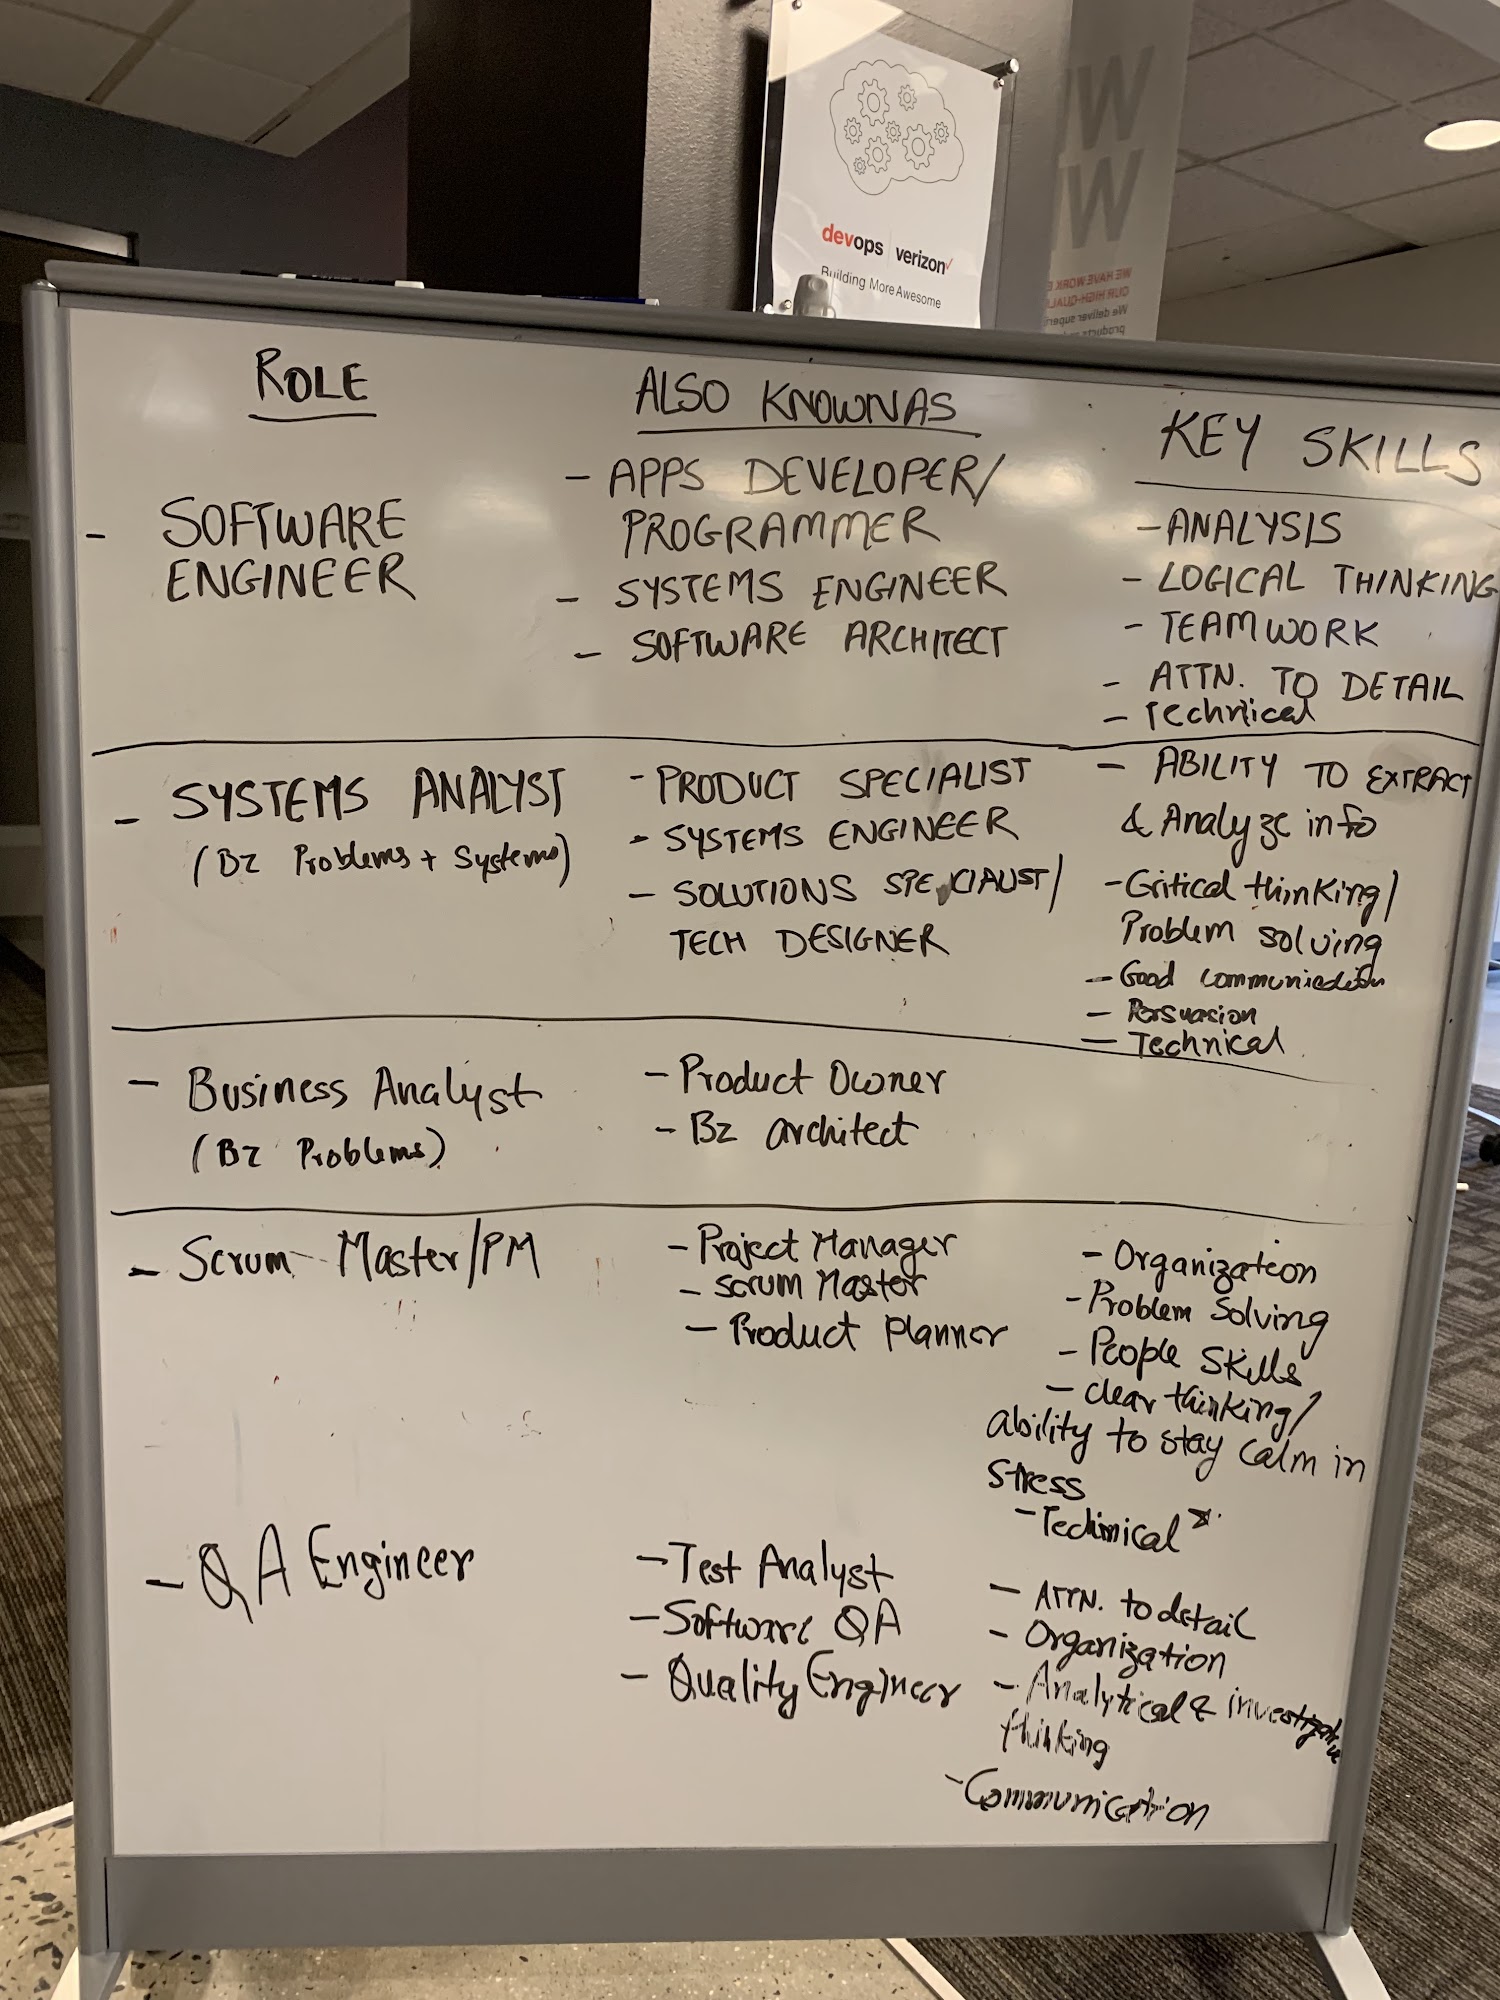 devops | verizon
Building More Awesome
W
W
WE HAVE WORK
OUR HIGH-QUALI
We deliver superi
products
ROLE
ALSO KNOWN AS
KEY SKILLS
- SOFTWARE
ENGINEER
- APPS DEVELOPER/
PROGRAMMER
- SYSTEMS ENGINEER
- SOFTWARE ARCHITECT
- ANALYSIS
- LOGICAL THINKING
- TEAMWORK
- ATTN. TO DETAIL
- Technical
- SYSTEMS ANALYST
(Bz Problems + Systems)
- PRODUCT SPECIALIST
- SYSTEMS ENGINEER
- SOLUTIONS SPECIALIST/
TECH DESIGNER
- ABILITY TO EXTRACT
& Analyze info
- Critical thinking/
Problem solving
- Good communication
- Persuasion
- Technical
- Business Analyst
(Bz Problems)
- Product Owner
- Bz architect
- Scrum Master/PM
- Project Manager
- scrum Master
- Product planner
- Organization
- Problem Solving
- People Skills
- clear thinking/
ability to stay calm in
stress
- Technical *
- QA Engineer
- Test Analyst
- Software QA
- Quality Engineer
- ATTN. to detail
- Organization
- Analytical & investigative
thinking
- Communication